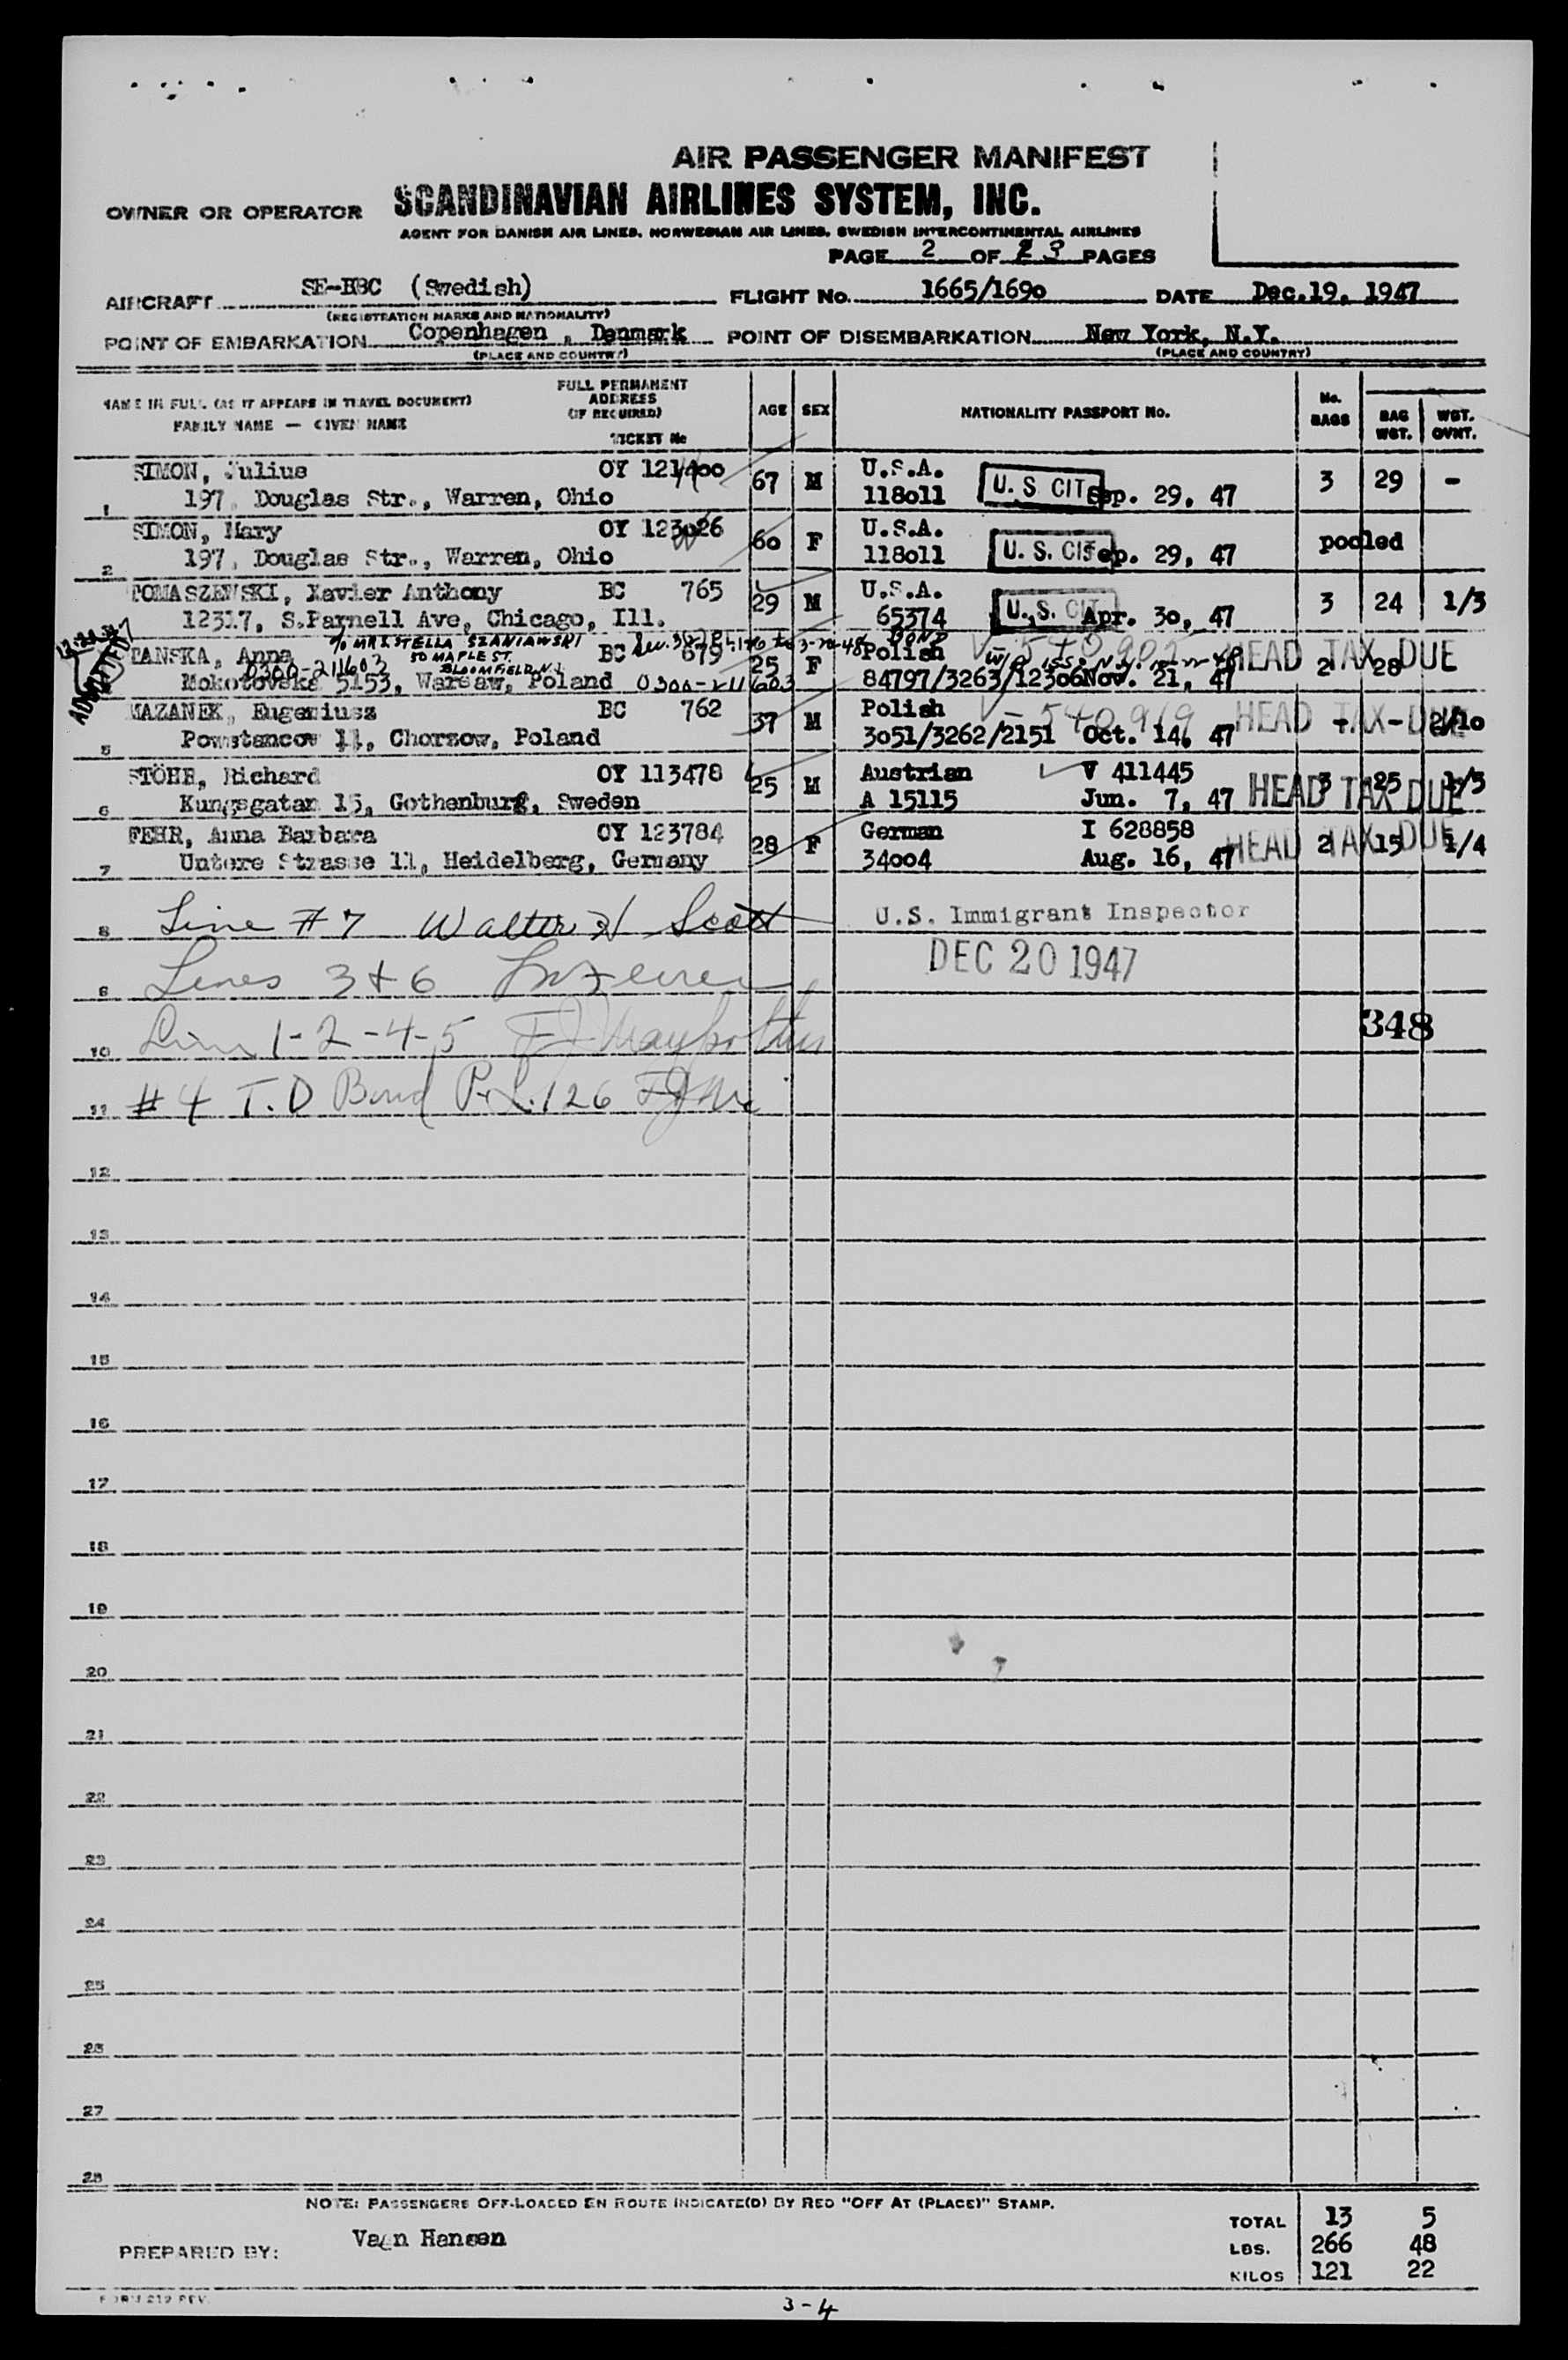 AIR PASSENGER MANIFEST
OWNER OR OPERATOR SCANDINAVIAN AIRLINES SYSTEM, INC.
AGENT FOR DANISH AIR LINES, NORWEGIAN AIR LINES, SWEDISH INTERCONTINENTAL AIRLINES
PAGE 2 OF 3 PAGES
AIRCRAFT SE-BBC (Swedish) FLIGHT No. 1665/169o DATE Dec.19, 1947
(REGISTRATION MARKS AND NATIONALITY)
POINT OF EMBARKATION Copenhagen, Denmark POINT OF DISEMBARKATION New York, N.Y.
(PLACE AND COUNTRY) (PLACE AND COUNTRY)
NAME IN FULL (AS IT APPEARS IN TRAVEL DOCUMENT)
FAMILY NAME — GIVEN NAME
FULL PERMANENT
ADDRESS
(IF REQUIRED)
TICKET No
AGE SEX NATIONALITY PASSPORT No. No. BAGS BAG WGT. WGT. OVNT.
SIMON, Julius OY 121400 67 M U.S.A. U.S. CIT 3 29 -
1 197, Douglas Str., Warren, Ohio 118o11 Sep. 29, 47
SIMON, Mary OY 123o26 6o F U.S.A. U.S. CIT pooled
2 197, Douglas Str., Warren, Ohio 118o11 Sep. 29, 47
TOMASZEWSKI, Xavier Anthony BC 765 29 M U.S.A. U.S. CIT 3 24 1/3
12317, S.Parnell Ave, Chicago, Ill. 65374 Apr. 3o, 47
% MRS STELLA SZANIAWSKI
50 MAPLE ST.
BLOOMFIELD N.J.
ADMITTED
TANSKA, Anna BC 679 25 F Polish BOND HEAD TAX DUE 2 28
0300-211603
Mokotovska 5153, Warsaw, Poland 0300-211603 84797/3263/123o6 Nov. 21, 47
MAZANEK, Eugeniusz BC 762 37 M Polish V-540919 HEAD TAX DUE - - 2/1o
5 Powstancow 11, Chorzow, Poland 3o51/3262/2151 Oct. 14, 47
STÖHR, Richard OY 113478 25 M Austrian V 411445 HEAD TAX DUE 3 25 1/3
6 Kungsgatan 15, Gothenburg, Sweden A 15115 Jun. 7, 47
FEHR, Anna Barbara OY 123784 28 F German I 628858 HEAD TAX DUE 2 15 1/4
7 Untere Strasse 11, Heidelberg, Germany 34oo4 Aug. 16, 47
8 Line #7 Walter H Scott U.S. Immigrant Inspector
DEC 20 1947
9 Lines 3 & 6
10 Lines 1-2-4-5 348
11 #4 T.D Bond P.L. 126
12
13
14
15
16
17
18
19
20
21
22
23
24
25
26
27
28
NOTE: PASSENGERS OFF-LOADED EN ROUTE INDICATE(D) BY RED "OFF AT (PLACE)" STAMP.
PREPARED BY: Vagn Hansen
TOTAL 13 5
LBS. 266 48
KILOS 121 22
FORM 219 REV.
3-4